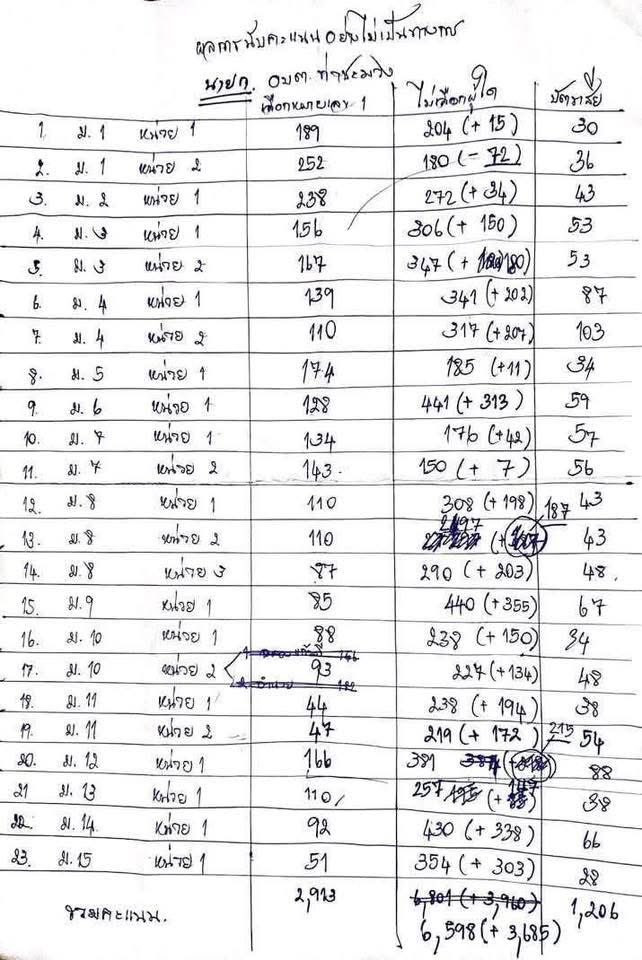 ผลการนับคะแนนอย่างไม่เป็นทางการ
นายก. อบต. ท่าชะมวง
เลือกหมายเลข 1 ไม่เลือกผู้ใด บัตรเสีย
1. ม.1 หน่วย 1 189 204 (+15) 30
2. ม.1 หน่วย 2 252 180 (-72) 36
3. ม.2 หน่วย 1 238 272 (+34) 43
4. ม.3 หน่วย 1 156 306 (+150) 53
5. ม.3 หน่วย 2 167 347 (+180) 53
6. ม.4 หน่วย 1 139 341 (+202) 87
7. ม.4 หน่วย 2 110 317 (+207) 103
8. ม.5 หน่วย 1 174 185 (+11) 34
9. ม.6 หน่วย 1 128 441 (+313) 59
10. ม.7 หน่วย 1 134 176 (+42) 57
11. ม.7 หน่วย 2 143. 150 (+7) 56
12. ม.8 หน่วย 1 110 308 (+198) 43
13. ม.8 หน่วย 2 110 297 187 43
14. ม.8 หน่วย 3 87 290 (+203) 48
15. ม.9 หน่วย 1 85 440 (+355) 67
16. ม.10 หน่วย 1 88 238 (+150) 34
17. ม.10 หน่วย 2 93 227 (+134) 48
18. ม.11 หน่วย 1 44 238 (+194) 38
19. ม.11 หน่วย 2 47 219 (+172) 54
20. ม.12 หน่วย 1 166 381 215 88
21 ม.13 หน่วย 1 110 257 147 38
22. ม.14 หน่วย 1 92 430 (+338) 66
23. ม.15 หน่วย 1 51 354 (+303) 28
รวมคะแนน. 2,913 6,801 (+3,960) 1,206
6,598 (+3,685)